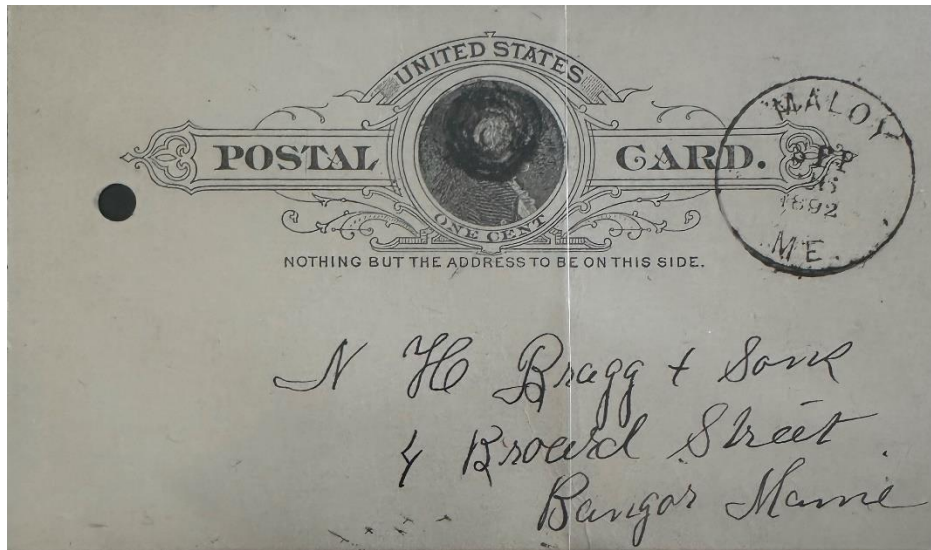 UNITED STATES
POSTAL CARD.
ONE CENT
NOTHING BUT THE ADDRESS TO BE ON THIS SIDE.
MALOY
SEP
1892
ME.
N H Bragg + Sons
4 Broad Street
Bangor Maine